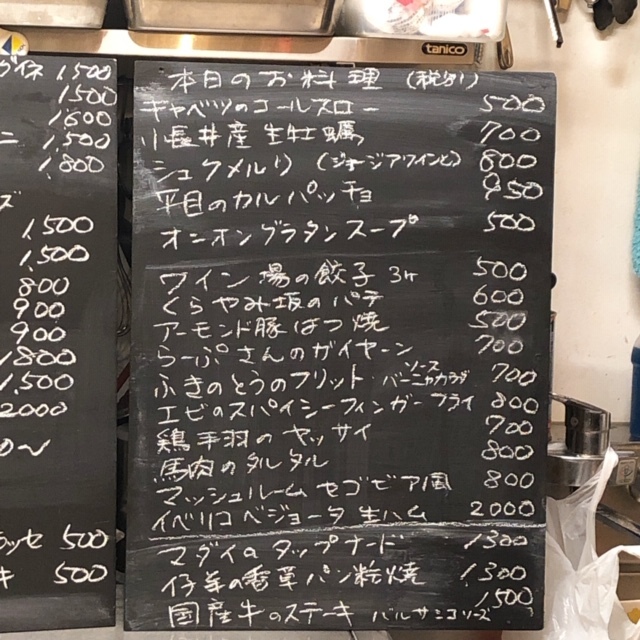 tanico
グイネ 1,500
1500
1,600
ニ 1,500
1,800
ズ
1,500
1,500
800
900
900
1800
1,500
2000
0〜
ロッセ 500
キ 500
本日のお料理 (税別)
キャベツのコールスロー 500
小長井産生牡蠣 700
シュクメルリ (ジョージアワインと) 800
平目のカルパッチョ 950
オニオングラタンスープ 500
ワイン湯の餃子 3ヶ 500
くらやみ坂のパテ 600
アーモンド豚はつ焼 500
らーぷさんのガイヤーン 700
ふきのとうのフリット バーニャカウダソース 700
エビのスパイシーフィンガーフライ 800
鶏手羽のヤッサイ 700
馬肉のタルタル 800
マッシュルームセゴビア風 800
イベリコベジョータ生ハム 2000
マダイのタップナード 1300
仔羊の香草パン粉焼 1,300
国産牛のステーキ バルサミコソース 1,500